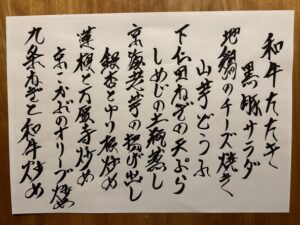 和牛たたき
黒豚サラダ
地鶏のチーズ焼き
山芋どうふ
下仁田ねぎの天ぷら
しめじの土瓶蒸し
京海老芋の揚げ出し
銀杏とゆり根炒め
蓮根と万願寺炒め
京こかぶのオリーブ炒め
九条ねぎと和牛炒め